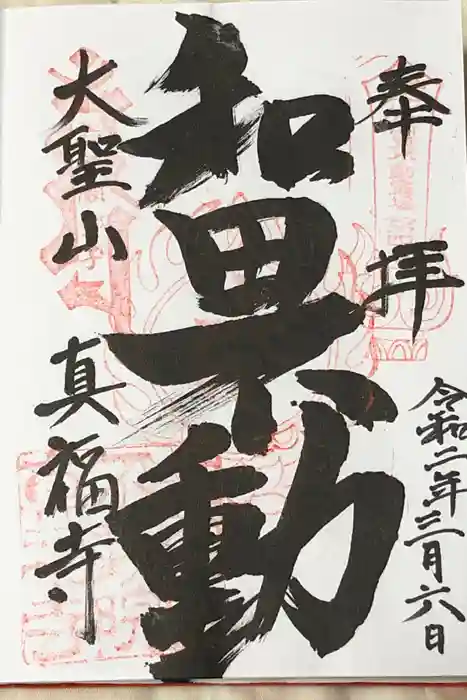 奉拝
令和二年三月六日
和田不動
大聖山
真福寺